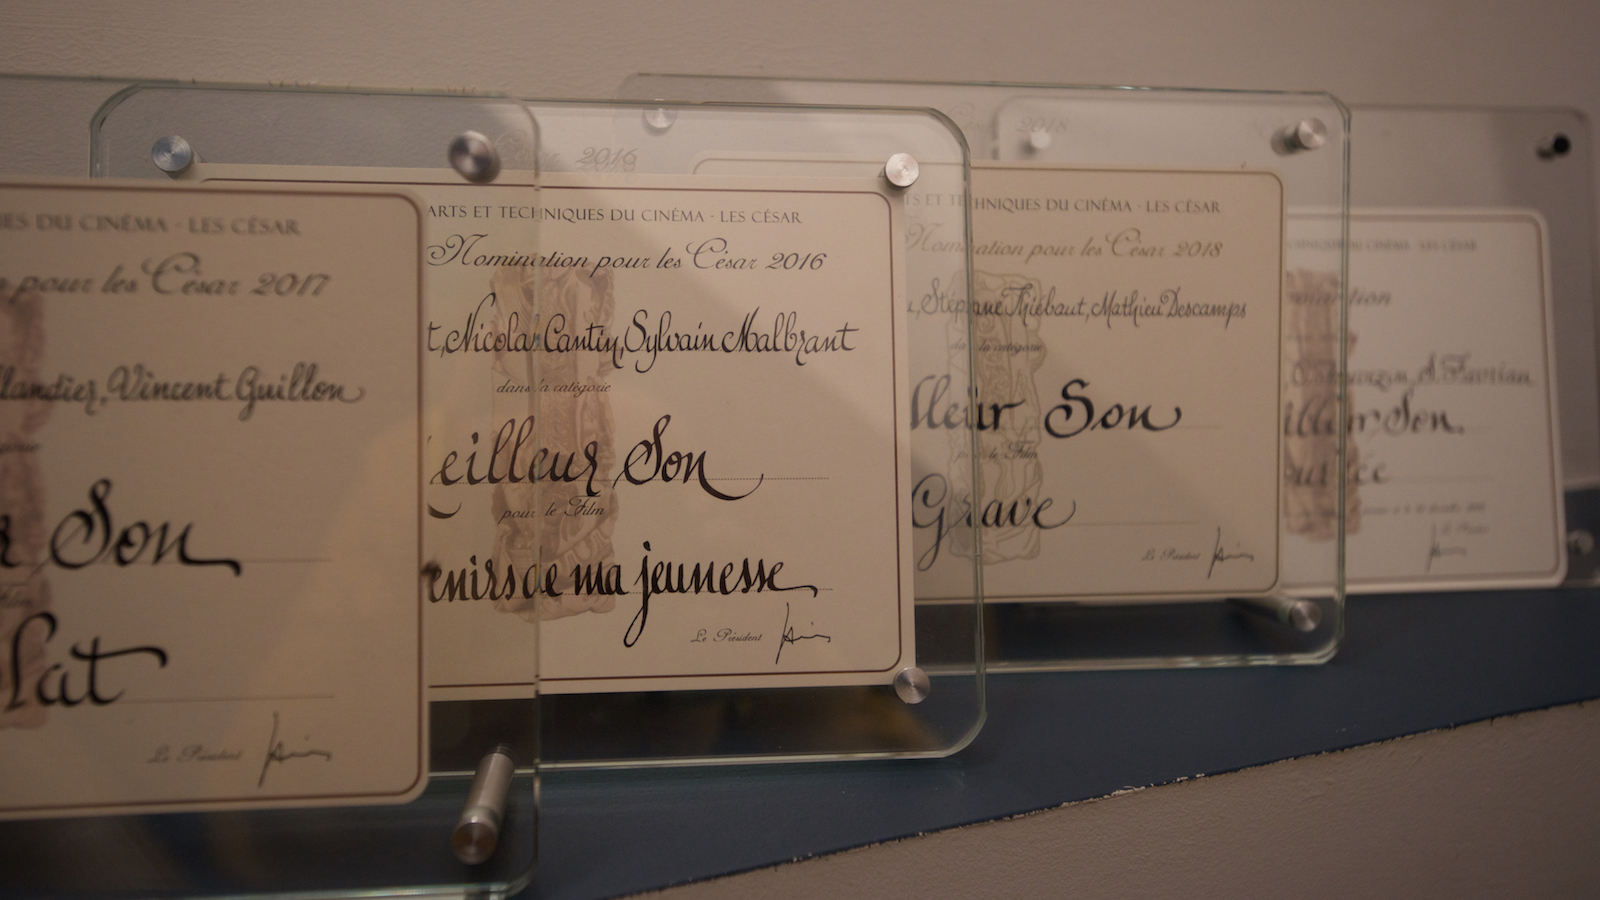 DU CINÉMA - LES CÉSAR
pour les César 2017
Vincent Guillon
Son
lat
Le Président
2016
ARTS ET TECHNIQUES DU CINÉMA - LES CÉSAR
Nomination pour les César 2016
t, Nicolas Cantin, Sylvain Malbrant
dans la catégorie
eilleur Son
pour le Film
enirs de ma jeunesse
Le Président
2018
TECHNIQUES DU CINÉMA - LES CÉSAR
Nomination pour les César 2018
Stéphane Thiébaut, Mathieu Descamps
dans la catégorie
lleur Son
pour le Film
Grave
Le Président
LES CÉSAR
Son.